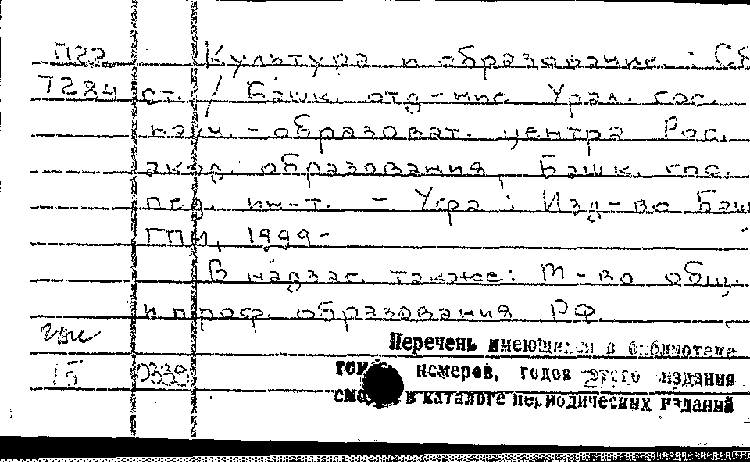 П22 Культура и образование. : Сб
7284 ст. / Башк. отд-ние Урал. гос.
науч.-образоват. центра Рос.
акад. образования, Башк. гос.
пед. ин-т. - Уфа : Изд-во Баш
ГПИ, 1999-
В надзаг. также: М-во общ.
и проф. образования РФ.
Перечень имеющихся в библиотеке
15 0339 томов, номеров, годов этого издания
смотри в каталоге периодических изданий